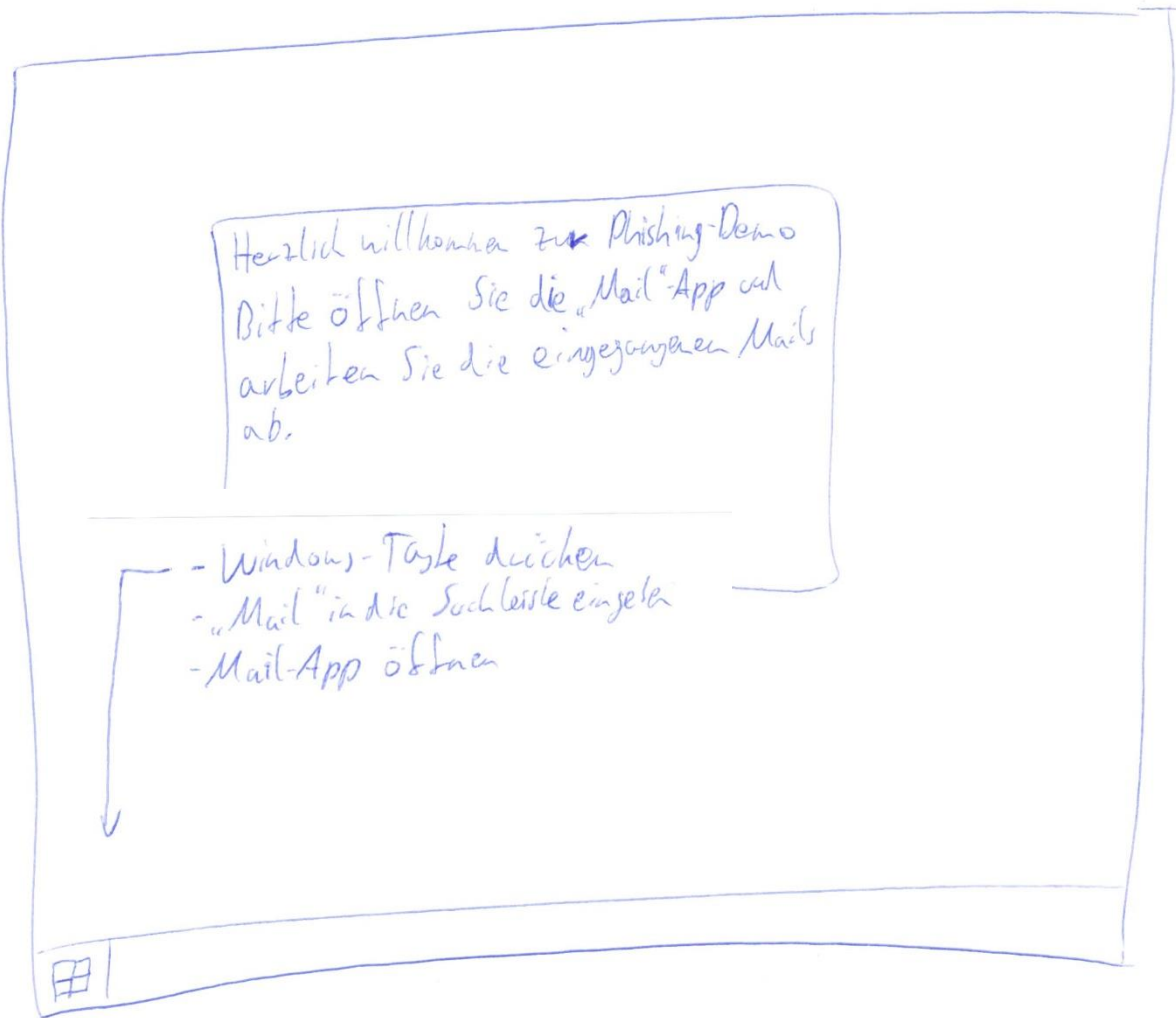 Herzlich willkommen zur Phishing-Demo
Bitte öffnen Sie die „Mail“-App und
arbeiten Sie die eingegangenen Mails
ab.
- Windows-Taste drücken
- „Mail“ in die Suchleiste eingeben
- Mail-App öffnen